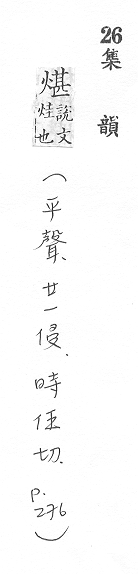 26集韻
煁說文
烓也
(平聲、廿一侵、時任切、p.276)